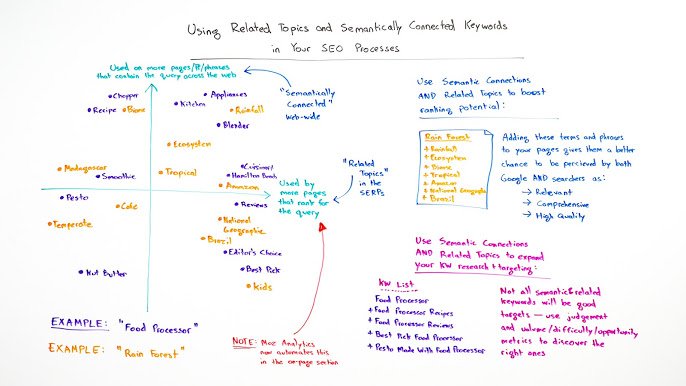 Using Related Topics and Semantically Connected Keywords
in Your SEO Processes
Used on more pages/¶/phrases
that contain the query across the web
"Semantically
Connected"
web-wide
Chopper
Recipe
Biome
Appliances
Kitchen
Rainfall
Blender
Ecosystem
Madagascar
Smoothie
Tropical
Cuisinart
Hamilton Beach
Amazon
"Related
Topics"
in the
SERPs
Used by
more pages
that rank for
the query
Pesto
Cake
Temperate
Reviews
National
Geographic
Brazil
Editor's Choice
Best Pick
Kids
Nut Butter
EXAMPLE: "Food Processor"
EXAMPLE: "Rain Forest"
NOTE: Moz Analytics
now automates this
in the on-page section
Use Semantic Connections
AND Related Topics to boost
ranking potential:
Rain Forest
+ Rainfall
+ Ecosystem
+ Biome
+ Tropical
+ Amazon
+ National Geographic
+ Brazil
Adding these terms and phrases
to your pages gives them a better
chance to be percieved by both
Google AND searchers as:
→ Relevant
→ Comprehensive
→ High Quality
Use Semantic Connections
AND Related Topics to expand
your KW research + targeting:
KW List
Food Processor
+ Food Processor Recipes
+ Food Processor Reviews
+ Best Pick Food Processor
+ Pesto Made With Food Processor
Not all semantic & related
keywords will be good
targets — use judgement
and volume/difficulty/opportunity
metrics to discover the
right ones